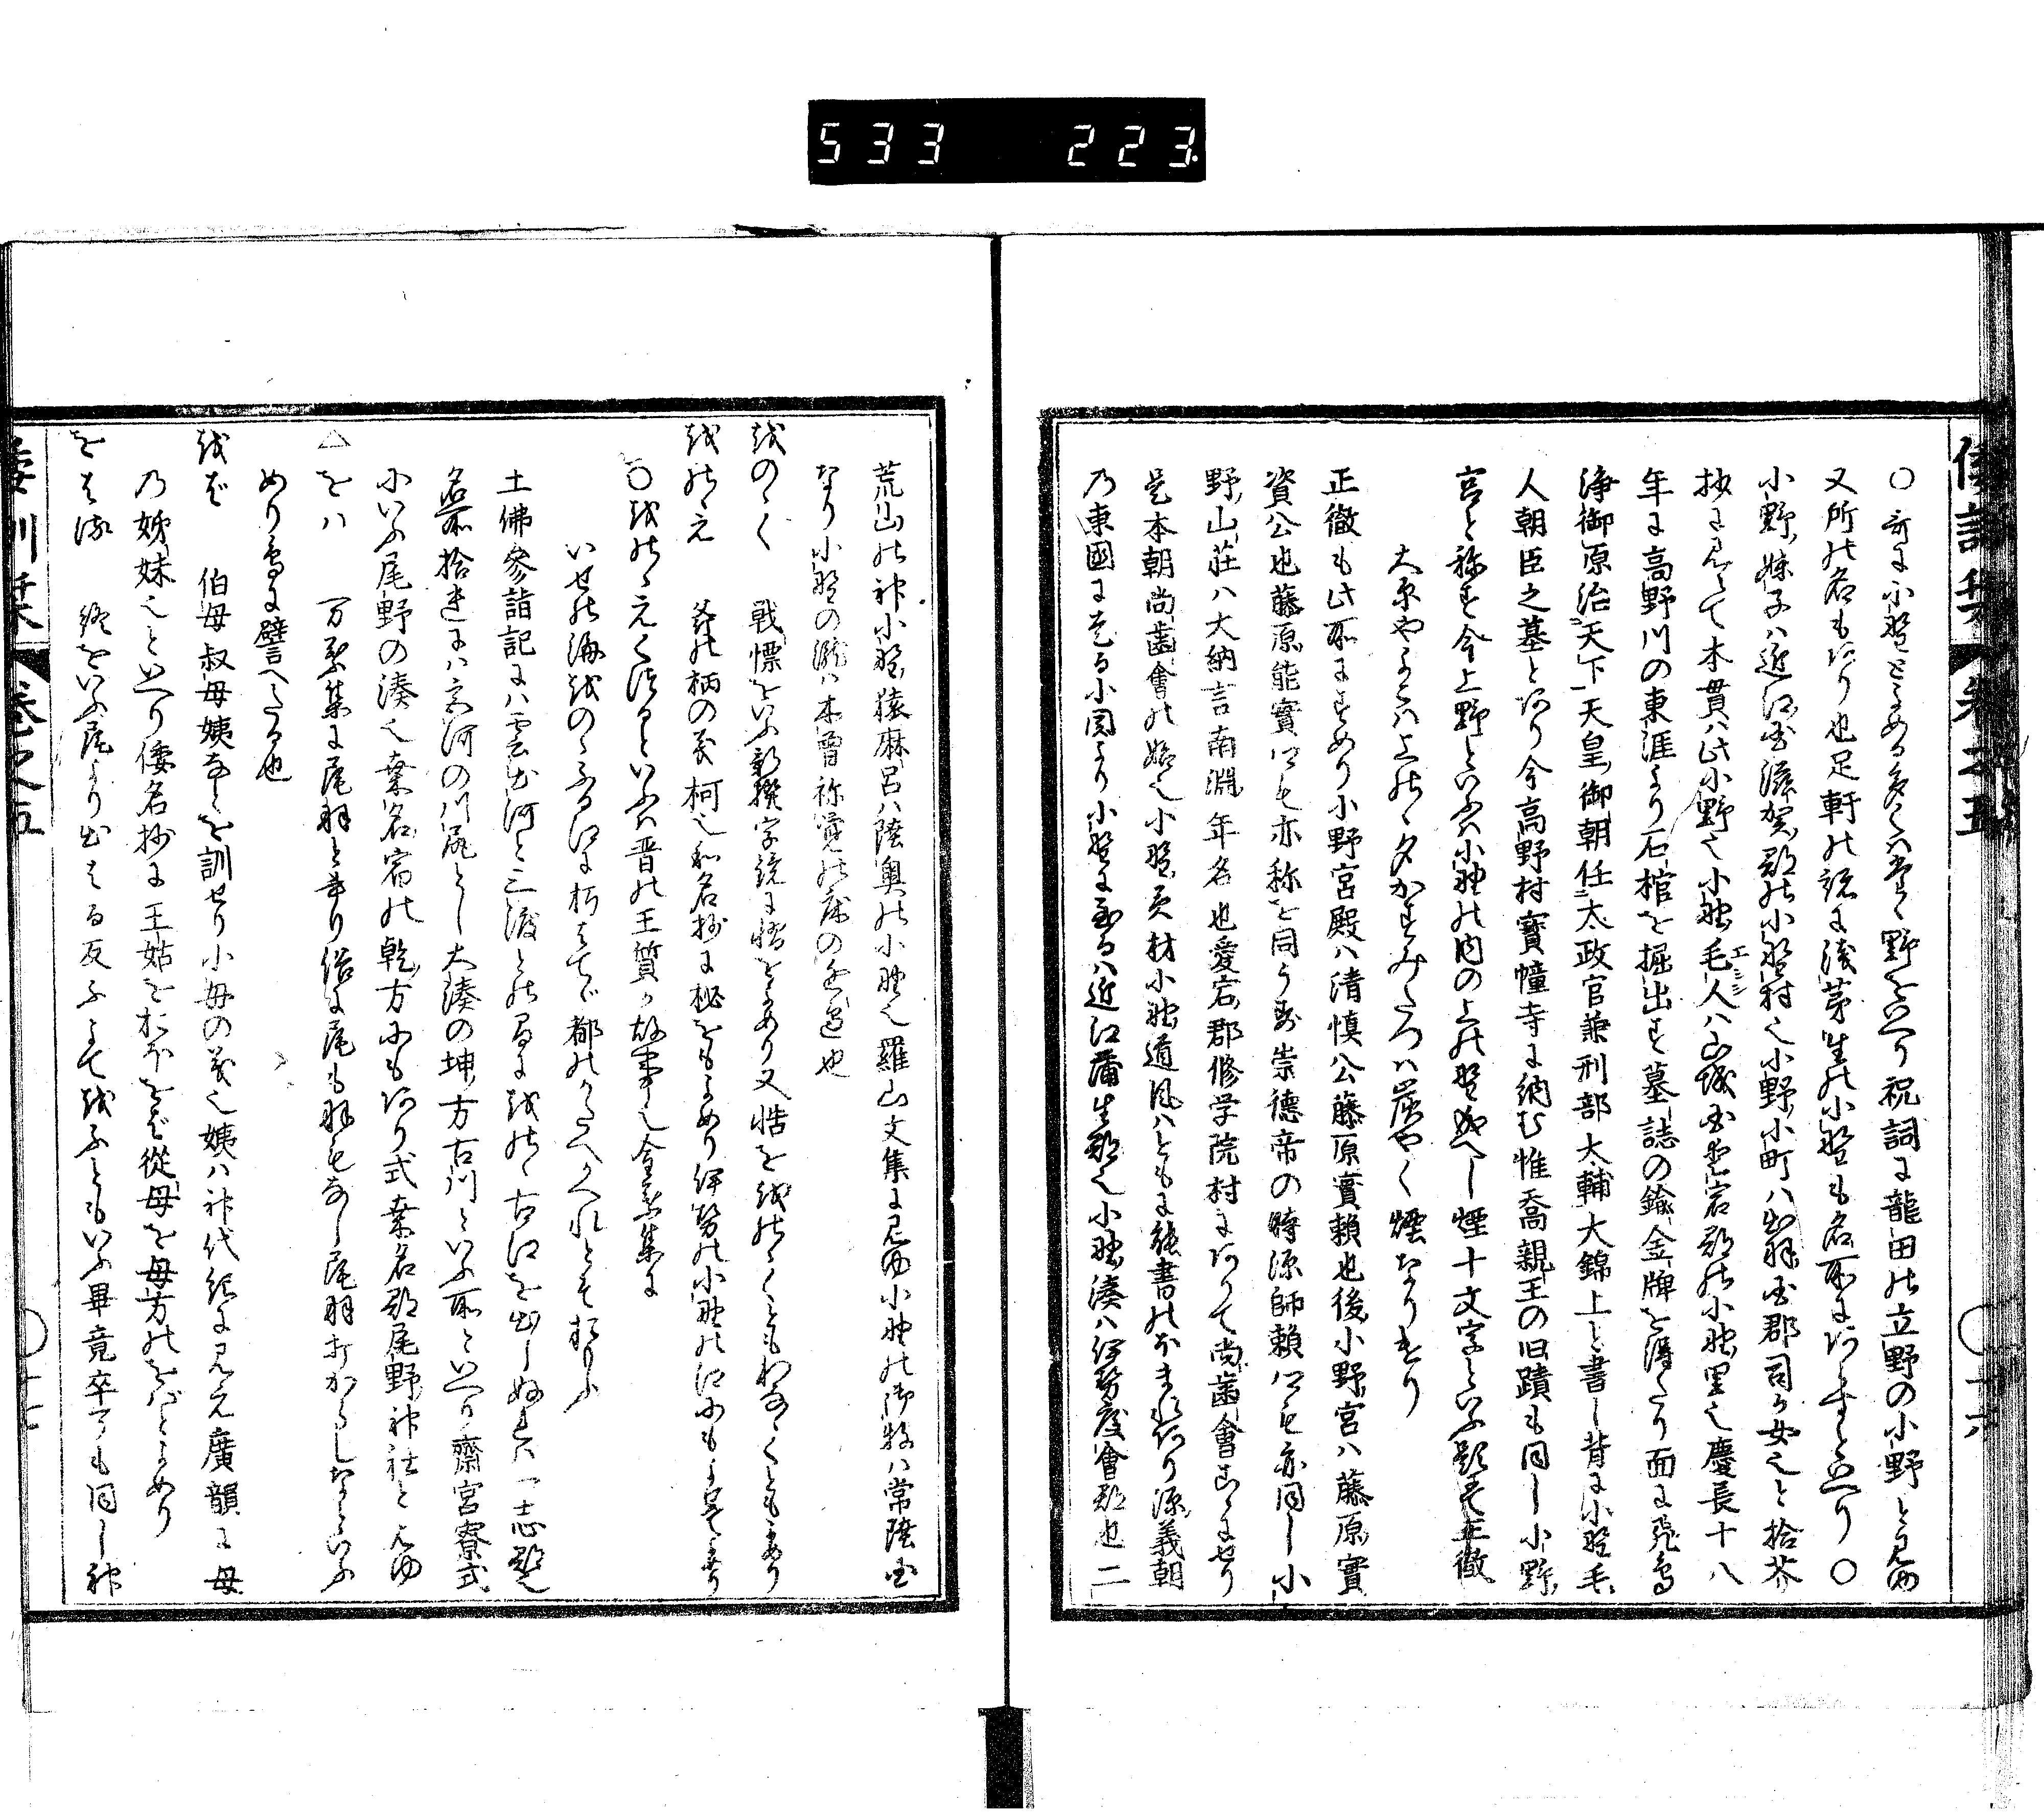 533 223
倭訓栞 卷之五
○哥に小野とよめる多くハ當々野をいへり祝詞に龍田の立野の小野と見ゆ
又所の名もあり也足軒の説に淺茅生の小野も名所にあらすといへり○
小野妹子ハ近江国滋賀郡の小野村也小野小町ハ出羽国郡司か女也と拾芥
抄に見えて本貫ハ此小野也小野毛人ハ山城国愛宕郡の小野里也慶長十八
エミシ
年に高野川の東涯より石棺を掘出す墓誌の鍮金牌を得たり面に飛鳥
浄御原治天下天皇御朝任太政官兼刑部大輔大錦上と書し背に小野毛
人朝臣之墓とあり今高野村寶幢寺に納む惟喬親王の旧蹟も同し小野
宮と称す今上野といふハ小野の内の上の野成へし煙十文字といふ題にて正徹
大原やよこハ上の夕かすみたつハ炭やく煙なりけり
正徹も此所にすめり小野宮殿ハ清慎公藤原實頼也後小野宮ハ藤原實
資公也藤原能實卿も亦称を同うす崇徳帝の時源師頼卿も亦同し小
野山荘ハ大納言南淵年名也愛宕郡修学院村にありて尚歯會こゝにせり
是本朝尚歯會の始也小野美材小野道風ハともに能書のほまれあり源義朝
乃東國に走る小関より小野に至るハ近江蒲生郡也小野湊ハ伊勢度會郡也二
荒山の神小野猿麻呂ハ陸奥の小野也羅山文集に見ゆ小野の御牧ハ常陸国
なり小野の瀧ハ木曾祢覚の床の近邊也
をのゝく 戦慄をいふ新撰字鏡に慴をよめり又悎ををのゝくともわなゝくともよめり
をのゝえ 斧の柄の義柯也和名抄に柲をもよめり伊勢の小野の江にもよせよめり
○をのゝえくつるといふハ晋の王質か故事也金葉集に
いせの海をのゝふる江に朽はてゝ都のかたへかへれとそおもふ
土佛参詣記にハ雲出河と三渡との間にをのゝ古江を出しぬれハ一志郡也
名所拾遺にハ宮河の川尻とし大湊の坤方古川といふ所といへり齋宮寮式
にいふ尾野の湊也桒名宿の乾方にもあり式桒名郡尾野神社と見ゆ
△をハ 万葉集に尾羽と書り俗に尾も羽もなし尾羽打からしなといふ
めり鳥に譬へたる也
をば 伯母叔母姨なとを訓せり小母の義也姨ハ神代紀に見え廣韻に母
乃姉妹也といへり倭名抄に王姑をおほをば從母を母方のをばとよめり
をはる 終をいふ尾より出たる反ふにてをふともいふ畢竟卒了も同し神
倭訓栞 卷之五 ○十七